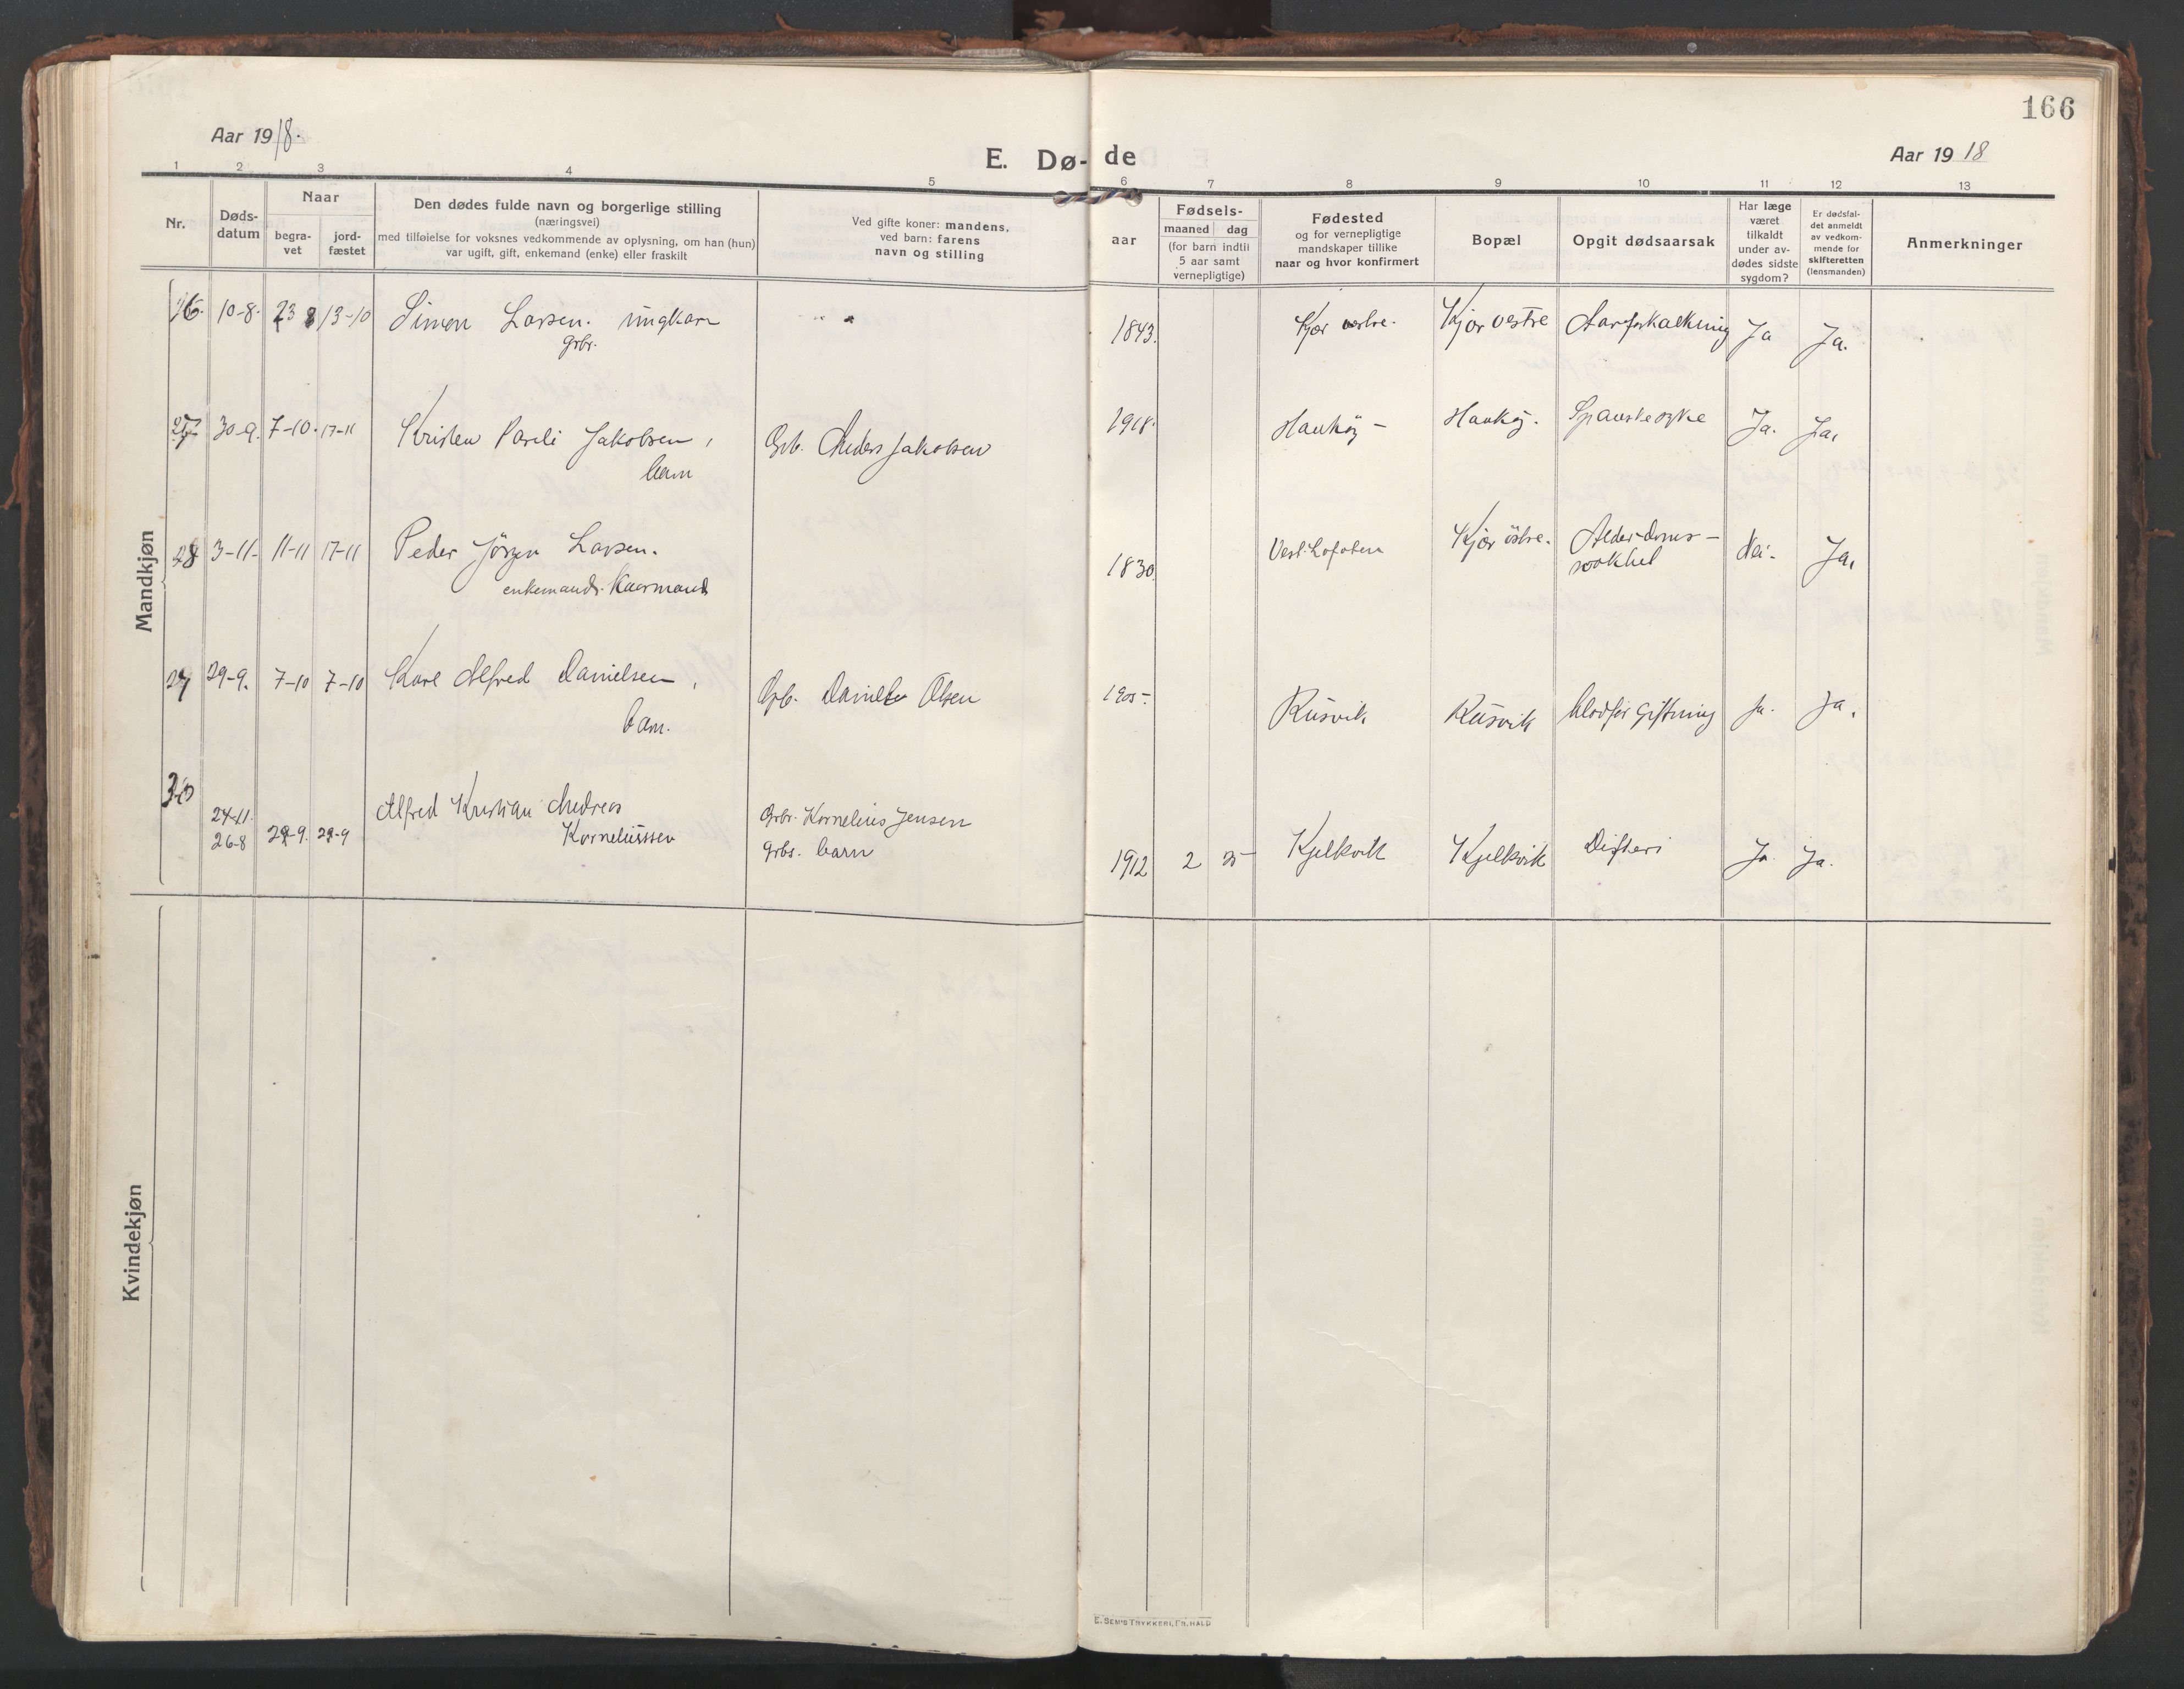 166
Aar 1918.
E. Dø-de
Aar 1918
1 2 3 4 5 6 7 8 9 10 11 12 13
Nr.
Døds-
datum
Naar
begra-
vet
jord-
fæstet
Den dødes fulde navn og borgerlige stilling
(næringsvei)
med tilføielse for voksnes vedkommende av oplysning, om han (hun)
var ugift, gift, enkemand (enke) eller fraskilt
Ved gifte koner: mandens,
ved barn: farens
navn og stilling
Fødsels-
aar
maaned dag
(for barn indtil
5 aar samt
vernepligtige)
Fødested
og for vernepligtige
mandskaper tillike
naar og hvor konfirmert
Bopæl
Opgit dødsaarsak
Har læge
været
tilkaldt
under av-
dødes sidste
sygdom?
Er dødsfal-
det anmeldt
av vedkom-
mende for
skifteretten
(lensmanden)
Anmerkninger
Mandkjøn
10-8. 13-10 Simon Larsen. ungkar 1843. Kjør vestre. Kjør vestre Aareforkalkning Ja Ja.
grbr.
27 30-9. 7-10. 17-11 Kristen Pareli Jakobsen, Grb. Anders Jakobsen 1918. Haukøy - Haukøy. Spanskesyke Ja. Ja.
barn
28 3-11- 11-11 17-11 Peder Jörgen Larsen. 1830. Vest-Lofoten Kjør östre. Alderdoms-
svakhet Nei. Ja,
enkemand. Kaarmand
29 29-9. 7-10 7-10 Karl Alfred Danielsen, Grb. Daniel Olsen 1905- Rusvik Rusvik blodforgiftning Ja. Ja.
barn.
30 24-11. Alfred Kristian Andreas Grbr. Kornelius Jensen
26-8 29-9. 29-9 Korneliussen grbs. barn 1912 2 25 Kjelkvik Kjelkvik Difteri Ja Ja.
Kvindekjøn
E. SEM'S TRYKKERI, FR.HALD